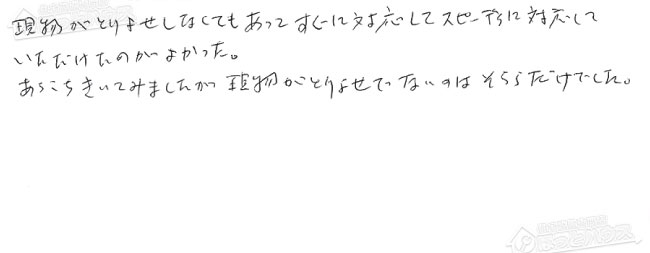 現物がとりよせしなくてもあって すぐに対応してスピーディに対応して
いただけたのがよかった。
あちこちきいてみましたが 現物がとりよせでないのは そちらだけでした。